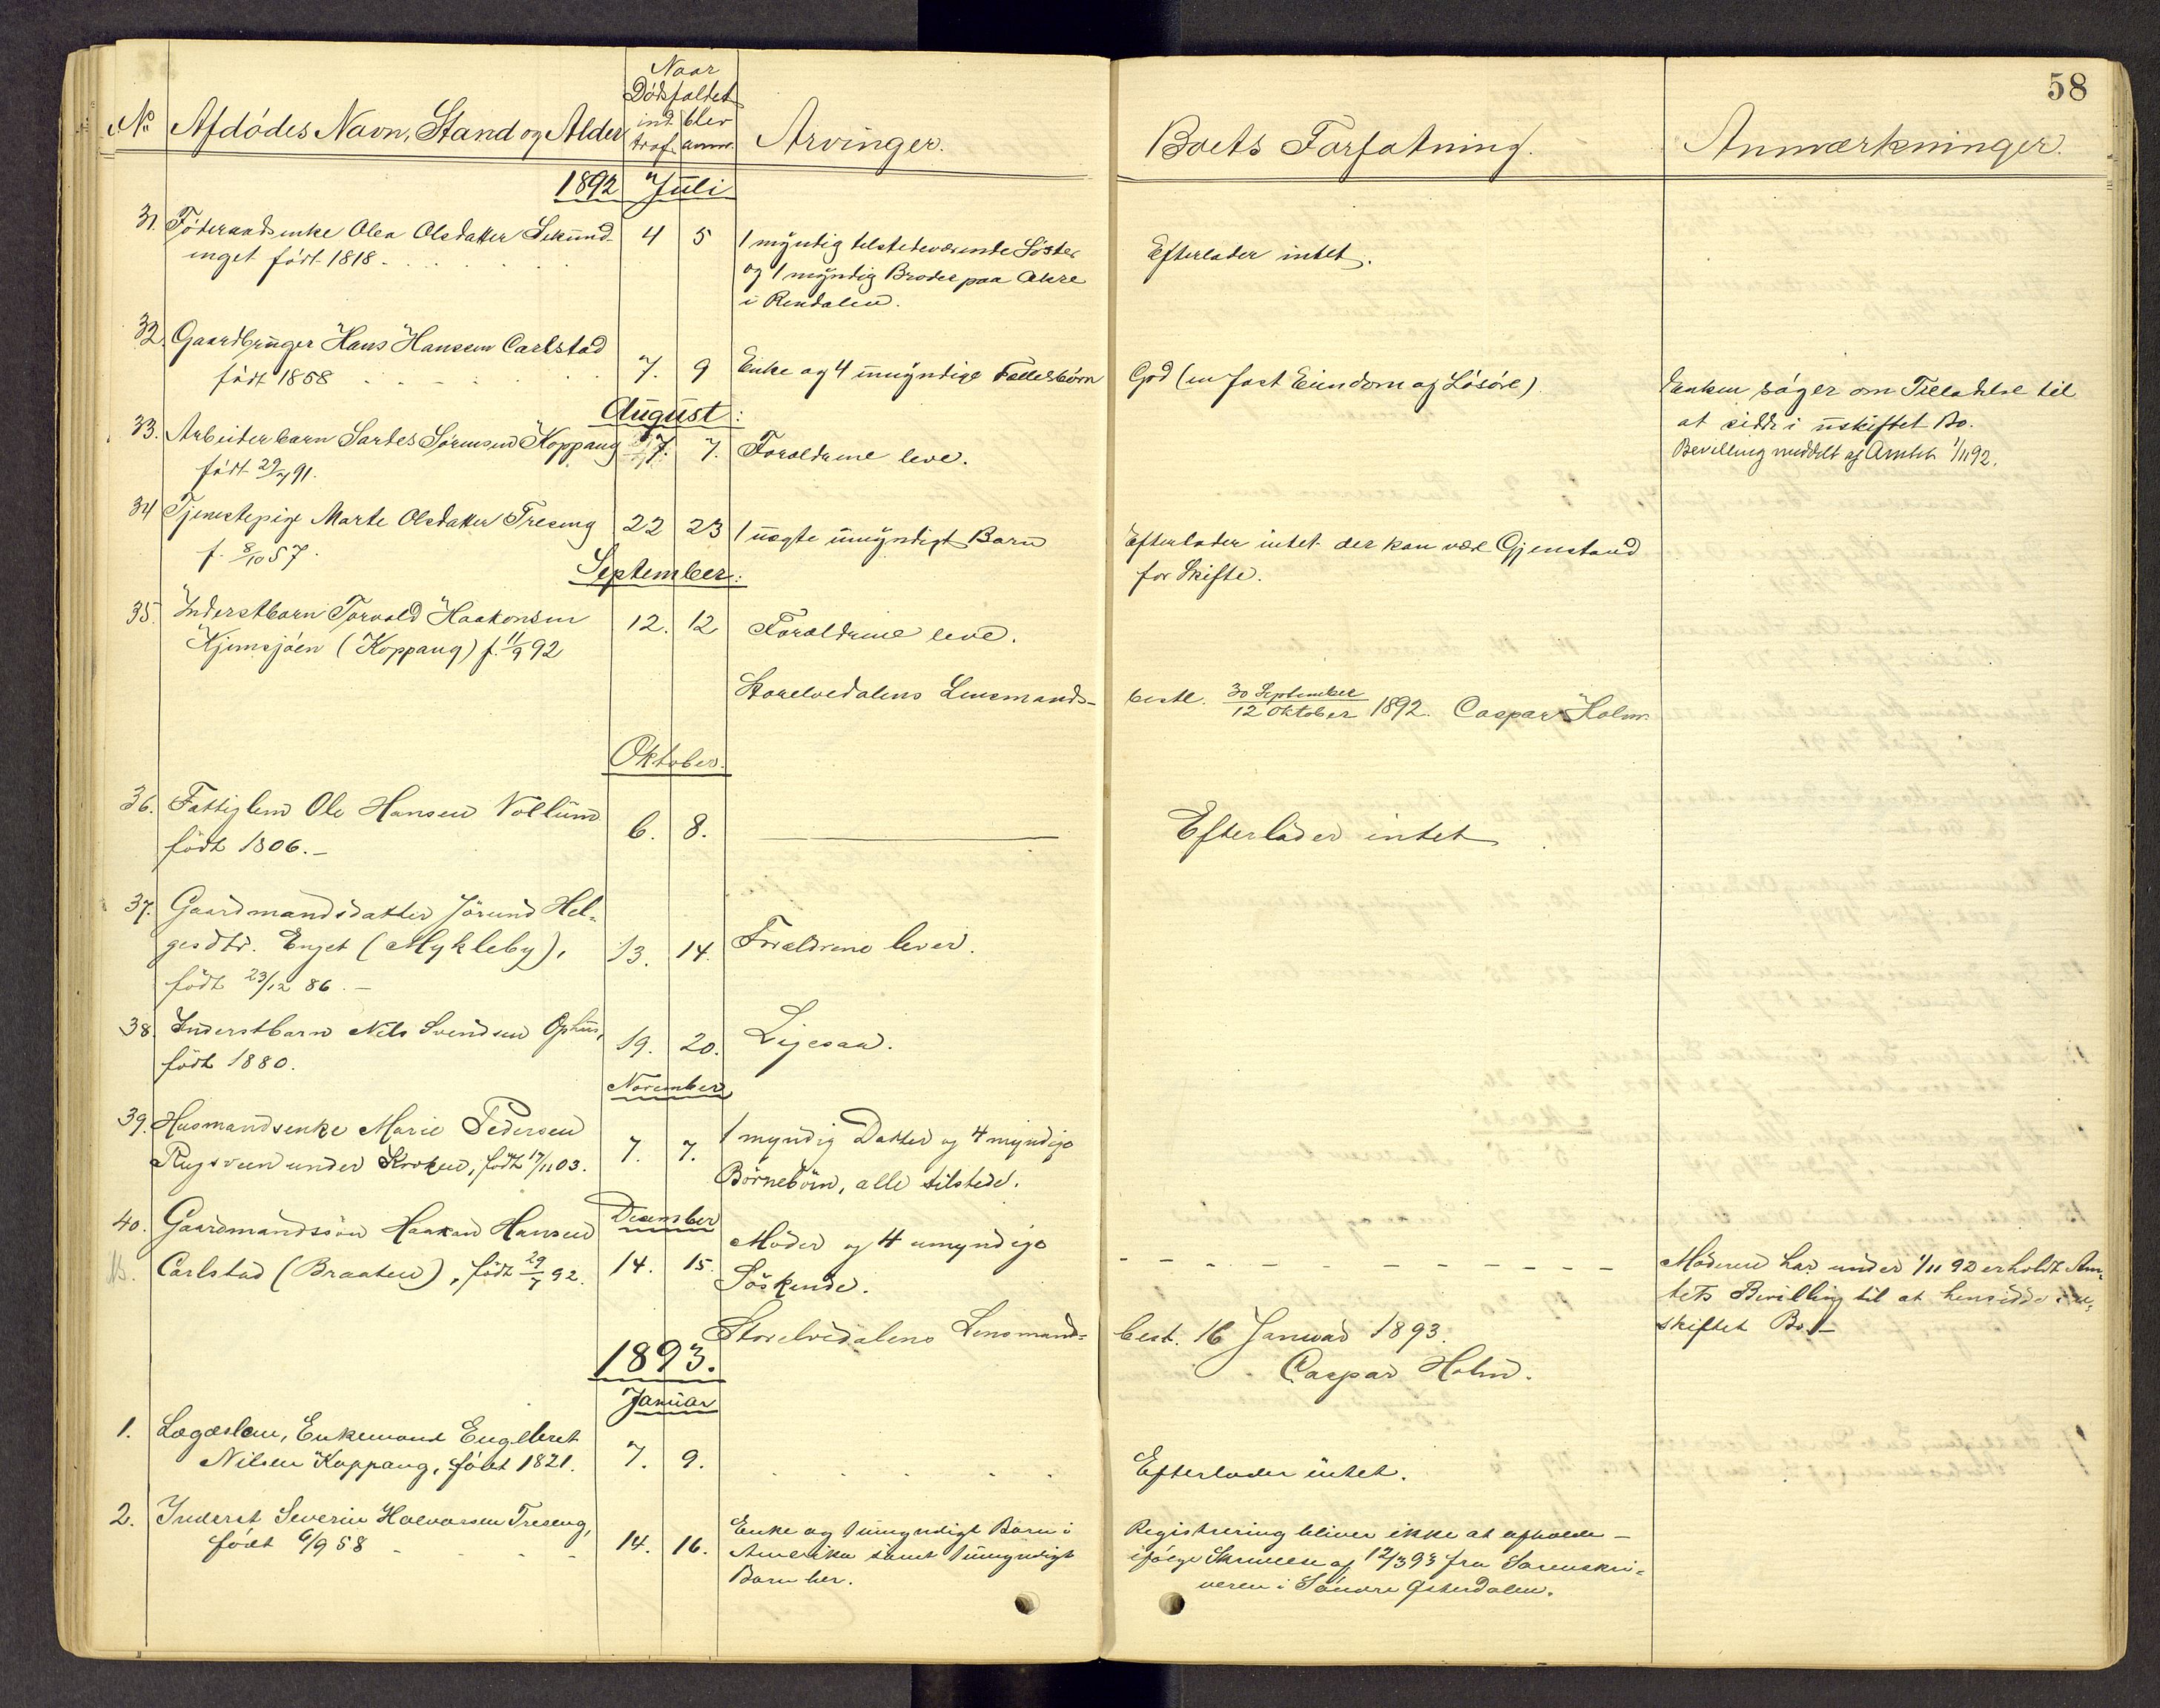 58
No Afdödes Navn, Stand og Alder
Naar
Dödsfaldet
ind- blev
traf. anm.
Arvinger.
Boets Forfatning.
Anmærkninger.
1892 Juli
31. Föderaadsenke Olea Olsdatter
inget född 1818. 4 5
1 myndig tilstedeværende Söster
og 1 myndig Broder paa Akre
i Rendalen.
Efterlader intet.
32. Gaardbruger Hans Hansen Carlstad
född 1858 7. 9
Enke og 4 umyndige Fællesbörn
God (en fast Eiendom og Lösöre).
Enken söger om Tilladelse til
at sidde i uskiftet Bo.
Bevilling meddelt af Amtet 1/11 92.
August:
33. Arbeiderbarn Sörensen Koppang 7. 7. Forældrene leve.
född 29/7 91.
34 Tjenestepige Marte Olsdatter Treseng 22 23 1 uægte umyndigt Barn
f. 8/10 57.
Efterlader intet der kan være Gjenstand
for Skifte.
September:
35. Inderstbarn Torvald Haakonsen 12. 12 Forældrene leve.
(Koppang) f. 11/9 92
Storelvedalens Lensmands-
bestl. 30 September
12 Oktober 1892. Caspar Holm.
Oktober.
36. Fattiglem Ole Hansen Vollum
född 1806.- 6. 8.
Efterlader intet
37. Gaardmandsdatter Jörund Hel-
gesdtr. Enget (Mykleby), 13. 14. Forældrene lever.
född 23/12 86.-
38. Inderstbarn Nils Svendsen Ophus, 19. 20. Ligesaa.
född 1880.
November
39. Husmandsenke Marie Pedersen
Rugsveen under Kroken, född 17/11 03. 7. 7.
1 myndig Datter og 4 myndige
Börnebörn, alle tilstede.
December
40. Gaardmandssön Haakon Hansen
Carlstad (Braaten), född 29/7 92. 14. 15.
Moder og 4 umyndige
Söskende.
Moderen har under 1/11 92 erholdt Am-
tets Bevilling til at hensidde i u-
skiftet Bo.-
Storelvedalens Lensmands-
best. 16 Januar 1893.
Caspar Holm.
1893.
Januar
1. Lægdslem, Enkemand Engebret
Nilsen Koppang, född 1821. 7. 9.
Efterlader intet.
2. Inderst Severin Halvorsen Treseng,
född 6/9 58 14. 16.
Enke og 1 umyndigt Barn i
Amerika samt 1 umyndigt
Barn her.
Registrering bliver ikke at afholde -
ifölge Skrivelse af 12/3 93 fra Sorenskri-
veren i Söndre Østerdalen.